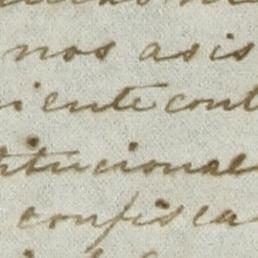 nos asis
iente cont
titucional
confisca